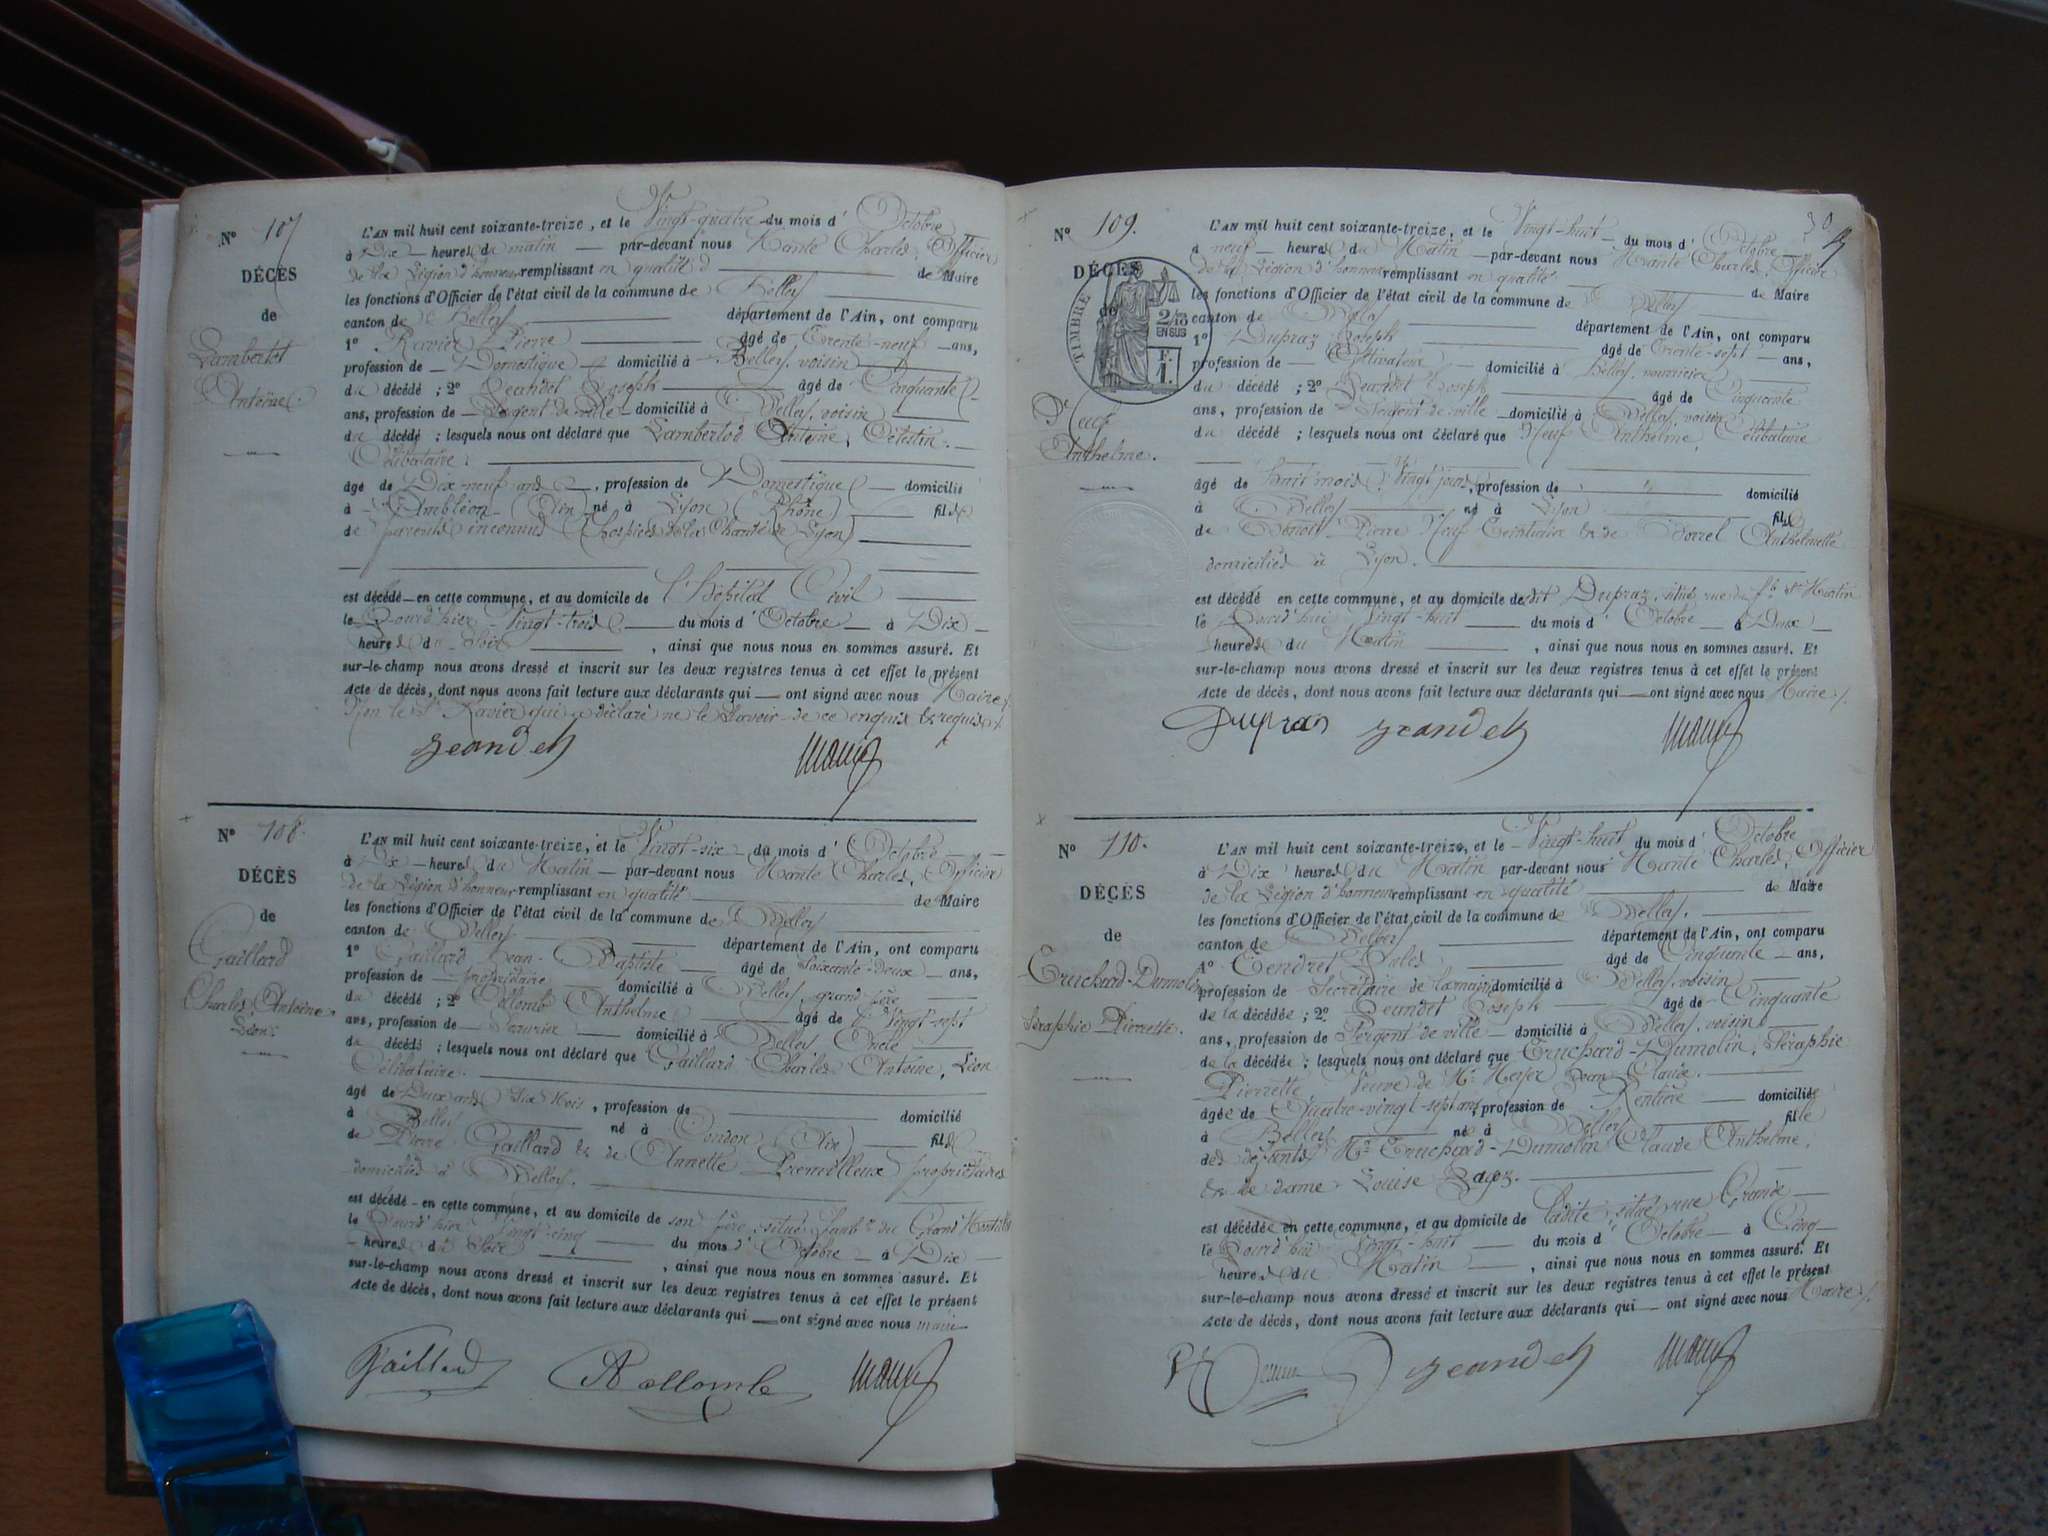 N° 107
DÉCÈS
de
Lambertod
Antoine.
L'AN mil huit cent soixante-treize, et le Vingt-quatre du mois d'Octobre
à Dix heures du matin par-devant nous Charles, Officier
de la Légion d'honneur remplissant en qualité d de Maire
les fonctions d'Officier de l'état civil de la commune de Belley
canton de Belley département de l'Ain, ont comparu
1° Ravier Pierre âgé de Trente-neuf ans,
profession de Domestique domicilié à Belley, voisin
du décédé ; 2° Jeandet Joseph âgé de Cinquante
ans, profession de Sergent de ville domicilié à Belley, voisin
du décédé ; lesquels nous ont déclaré que Lambertod Antoine, Célestin.
Célibataire.
âgé de Dix-neuf ans, profession de Domestique domicilié
à Ambléon (Ain) né à Lyon (Rhône) fils
de parents inconnus (hospice de la Charité de Lyon)
est décédé en cette commune, et au domicile de l'hôpital Civil
le Jourd'hier Vingt-trois du mois d'Octobre à Dix
heures du Soir, ainsi que nous nous en sommes assuré. Et
sur-le-champ nous avons dressé et inscrit sur les deux registres tenus à cet effet le présent
Acte de décès, dont nous avons fait lecture aux déclarants qui ont signé avec nous Maire
Non le Sr Ravier qui a déclaré ne le savoir de ce enquis & requis
Jeandet
N° 108.
DÉCÈS
de
Gaillard
Charles, Antoine
Léon.
L'AN mil huit cent soixante-treize, et le Vingt-six du mois d'Octobre
à Dix heures du Matin par-devant nous Charles, Officier
de la Légion d'honneur remplissant en qualité de Maire
les fonctions d'Officier de l'état civil de la commune de Belley
canton de Belley département de l'Ain, ont comparu
1° Gaillard Jean-Baptiste âgé de Soixante-deux ans,
profession de propriétaire domicilié à Belley, grand père
du décédé ; 2° Collomb Anthelme âgé de Vingt-sept
ans, profession de domicilié à Belley Oncle
du décédé ; lesquels nous ont déclaré que Gaillard Charles Antoine, Léon
Célibataire.
âgé de Deux ans Six Mois, profession de domicilié
à Belley né à (Ain) fils
de Pierre Gaillard & de Annette Premilleux propriétaires
domiciliés à Belley.
est décédé en cette commune, et au domicile de son père, situé
le Jourd'hier Vingt-cinq du mois d'Octobre à Dix
heures du Soir, ainsi que nous nous en sommes assuré. Et
sur-le-champ nous avons dressé et inscrit sur les deux registres tenus à cet effet le présent
Acte de décès, dont nous avons fait lecture aux déclarants qui ont signé avec nous maire
Gaillard A Collomb
N° 109.
DÉCÈS
de
TIMBRE
2/10
EN SUS
F.
1.
Neuf
Anthelme.
L'AN mil huit cent soixante-treize, et le Vingt-huit du mois d'Octobre
à neuf heures du Matin par-devant nous Charles, Officier
de la Légion d'honneur remplissant en qualité de Maire
les fonctions d'Officier de l'état civil de la commune de Belley
canton de Belley département de l'Ain, ont comparu
1° Dupraz Joseph âgé de Trente-sept ans,
profession de Cultivateur domicilié à Belley, nourricier
du décédé ; 2° Jeandet Joseph âgé de Cinquante
ans, profession de Sergent de ville domicilié à Belley, voisin
du décédé ; lesquels nous ont déclaré que Neuf Anthelme, Célibataire
âgé de huit mois Vingt jours, profession de domicilié
à Belley né à Lyon fils
de Benoit Pierre Neuf & de Borrel Anthelmette
domiciliés à Lyon.
est décédé en cette commune, et au domicile dudit Dupraz, situé rue du fg St Martin
le Jourd'hui Vingt-huit du mois d'Octobre à Deux
heures du Matin, ainsi que nous nous en sommes assuré. Et
sur-le-champ nous avons dressé et inscrit sur les deux registres tenus à cet effet le présent
Acte de décès, dont nous avons fait lecture aux déclarants qui ont signé avec nous Maire
Dupraz Jeandet
N° 110.
DÉCÈS
de
Truchard-Dumolin
Séraphie Pierrette.
L'AN mil huit cent soixante-treize, et le Vingt-huit du mois d'Octobre
à Dix heures du Matin par-devant nous Charles, Officier
de la Légion d'honneur remplissant en qualité de Maire
les fonctions d'Officier de l'état civil de la commune de Belley.
canton de Belley département de l'Ain, ont comparu
1° Tendret Jules âgé de Cinquante ans,
profession de Secrétaire de la mairie domicilié à Belley, voisin
de la décédée ; 2° Jeandet Joseph âgé de Cinquante
ans, profession de Sergent de ville domicilié à Belley, voisin
de la décédée ; lesquels nous ont déclaré que Truchard-Dumolin, Séraphie
Pierrette Veuve de Mr Jean Claude.
âgée de Quatre-vingt-sept ans, profession de Rentière domiciliée
à Belley née à Belley fille
des défunts Mr Truchard-Dumolin Claude Anthelme.
& de dame Louise
est décédée en cette commune, et au domicile de ladite, situé rue Grande
le Jourd'hui Vingt-huit du mois d'Octobre à Cinq
heures du Matin, ainsi que nous nous en sommes assuré. Et
sur-le-champ nous avons dressé et inscrit sur les deux registres tenus à cet effet le présent
Acte de décès, dont nous avons fait lecture aux déclarants qui ont signé avec nous Maire
Jeandet